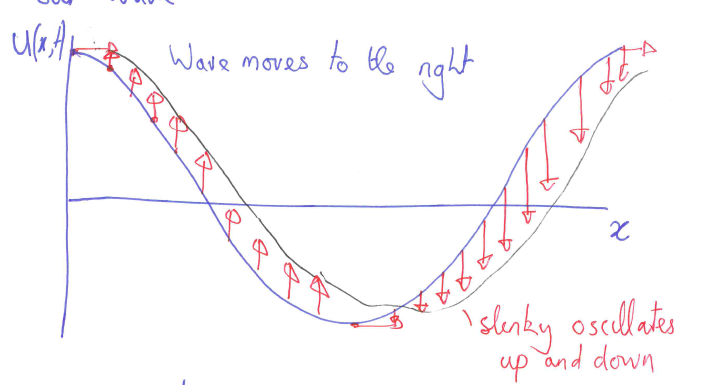 wave
U(x,t)
Wave moves to the right
x
slinky oscillates
up and down